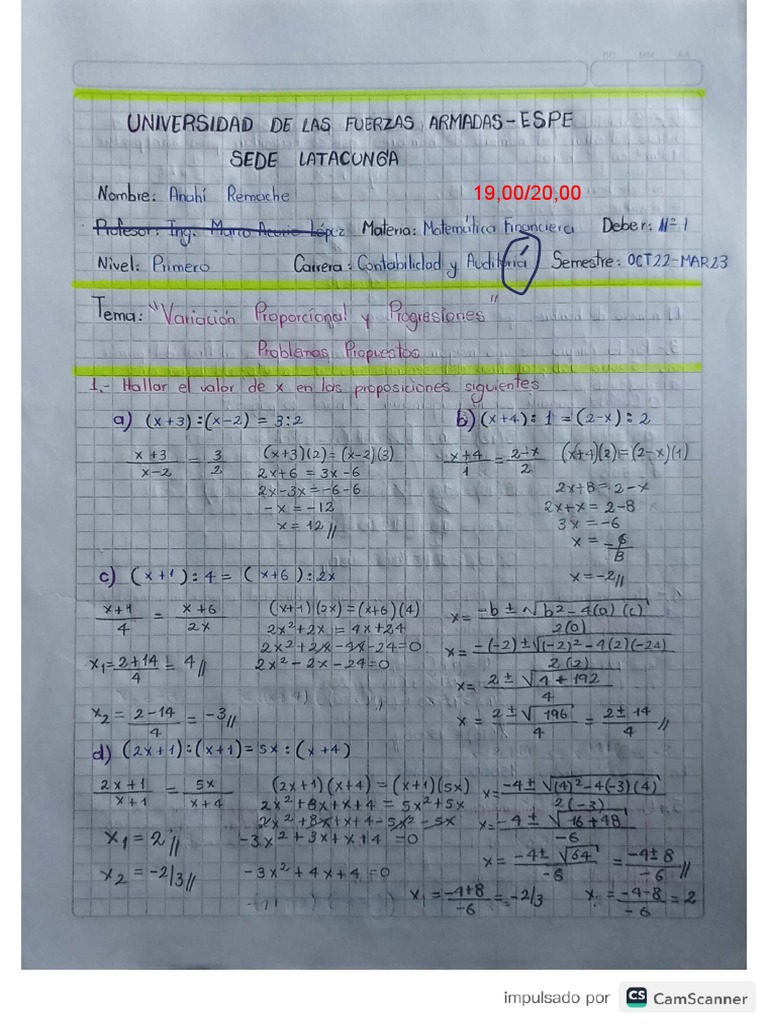 UNIVERSIDAD DE LAS FUERZAS ARMADAS-ESPE
SEDE LATACUNGA
Nombre: Anahí Remache 19,00/20,00
Profesor: Ing. Marco Acurio López Materia: Matemática Financiera Deber: Nº 1
Nivel: Primero Carrera: Contabilidad y Auditoriá Semestre: OCT22-MAR23
Tema: "Variación Proporcional y Progresiones"
Problemas Propuestos
1.- Hallar el valor de x en las proposiciones siguientes
a) (x+3):(x-2) = 3:2
x+3/x-2 = 3/2
(x+3)(2) = (x-2)(3)
2x+6 = 3x-6
2x-3x = -6-6
-x = -12
x = 12//
b) (x+4): 1 = (2-x): 2
x+4/1 = 2-x/2
(x+4)(2) = (2-x)(1)
2x+8 = 2-x
2x+x = 2-8
3x = -6
x = -6/3
x = -2//
c) (x+1): 4 = (x+6): 2x
x+1/4 = x+6/2x
(x+1)(2x) = (x+6)(4)
2x²+2x = 4x+24
2x²+2x-4x-24=0
2x²-2x-24=0
x= -b ± √b²-4(a)(c)/2(a)
x= -(-2) ± √(-2)²-4(2)(-24)/2(2)
x= 2 ± √4+192/4
x = 2 ± √196/4 = 2 ± 14/4 //
x₁ = 2+14/4 = 4//
x₂ = 2-14/4 = -3//
d) (2x+1):(x+1) = 5x:(x+4)
2x+1/x+1 = 5x/x+4
(2x+1)(x+4) = (x+1)(5x)
2x²+8x+x+4 = 5x²+5x
2x²+8x+x+4-5x²-5x
-3x²+3x+x+4 =0
-3x²+4x+4 =0
x= -4 ± √(4)²-4(-3)(4)/2(-3)
x= -4 ± √16+48/-6
x = -4 ± √64/-6 = -4 ± 8/-6 //
x₁ = -4+8/-6 = -2/3
x₂ = -4-8/-6 = 2
x₁ = 2//
x₂ = -2/3//
impulsado por CS CamScanner